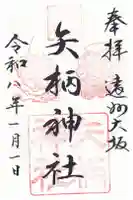 奉拝 遠州大坂
矢柄神社
令和八年一月一日